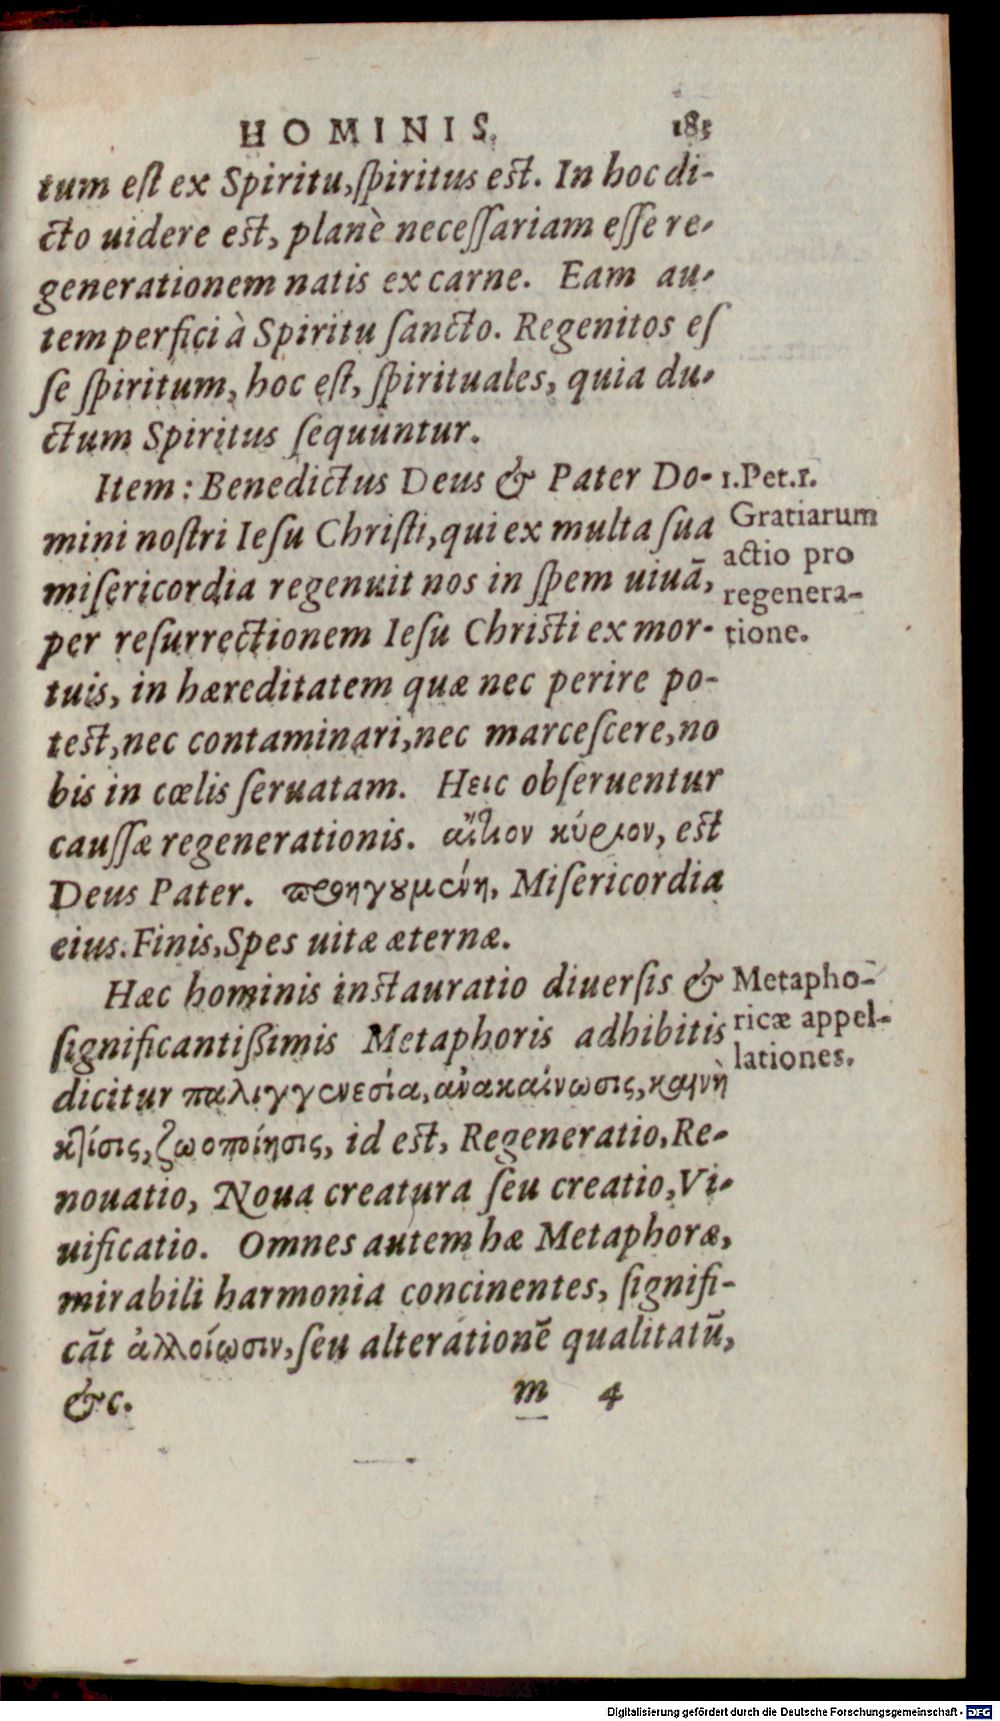 HOMINIS. 185
tum eſt ex Spiritu, ſpiritus est. In hoc di-
cto uidere est, planè neceſſariam eſſe re-
generationem natis ex carne. Eam au-
tem perfici à Spiritu ſancto. Regenitos eſ
ſe ſpiritum, hoc eſt, ſpirituales, quia du-
ctum Spiritus ſequuntur.
Item: Benedictus Deus & Pater Do-
mini noſtri Ieſu Chriſti, qui ex multa ſua
miſericordia regenuit nos in ſpem uiuã,
per reſurrectionem Ieſu Christi ex mor-
tuis, in hæreditatem quæ nec perire po-
test, nec contaminari, nec marceſcere, no
bis in cœlis ſeruatam. Heic obſeruentur
cauſſæ regenerationis. αἴτιον κύριον, est
Deus Pater. προηγουμένη, Miſericordia
eius. Finis, Spes uitæ æternæ.
Hæc hominis instauratio diuerſis &
ſignificantißimis Metaphoris adhibitis
dicitur παλιγγενεσία, ἀνακαίνωσις, καινὴ
κτίσις, ζωοποίησις, id est, Regeneratio, Re-
nouatio, Noua creatura ſeu creatio, Vi-
uificatio. Omnes autem hæ Metaphoræ,
mirabili harmonia concinentes, ſignifi-
cãt ἀλλοίωσιν, ſeu alterationẽ qualitatũ,
&c. m 4
1. Pet. 1.
Gratiarum
actio pro
regenera-
tione.
Metapho-
ricæ appel-
lationes.
Digitalisierung gefördert durch die Deutsche Forschungsgemeinschaft - DFG